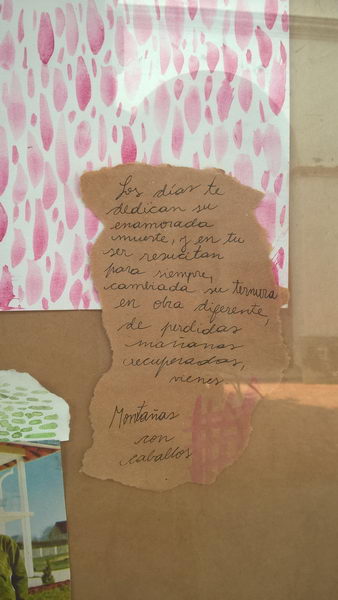 Los días te
dedican su
enamorada
muerte, y en tu
ser resucitan
para siempre,
cambiada su ternura
en obra diferente,
de perdidas
mañanas
recuperadas,
vienes
Montañas
con
caballos